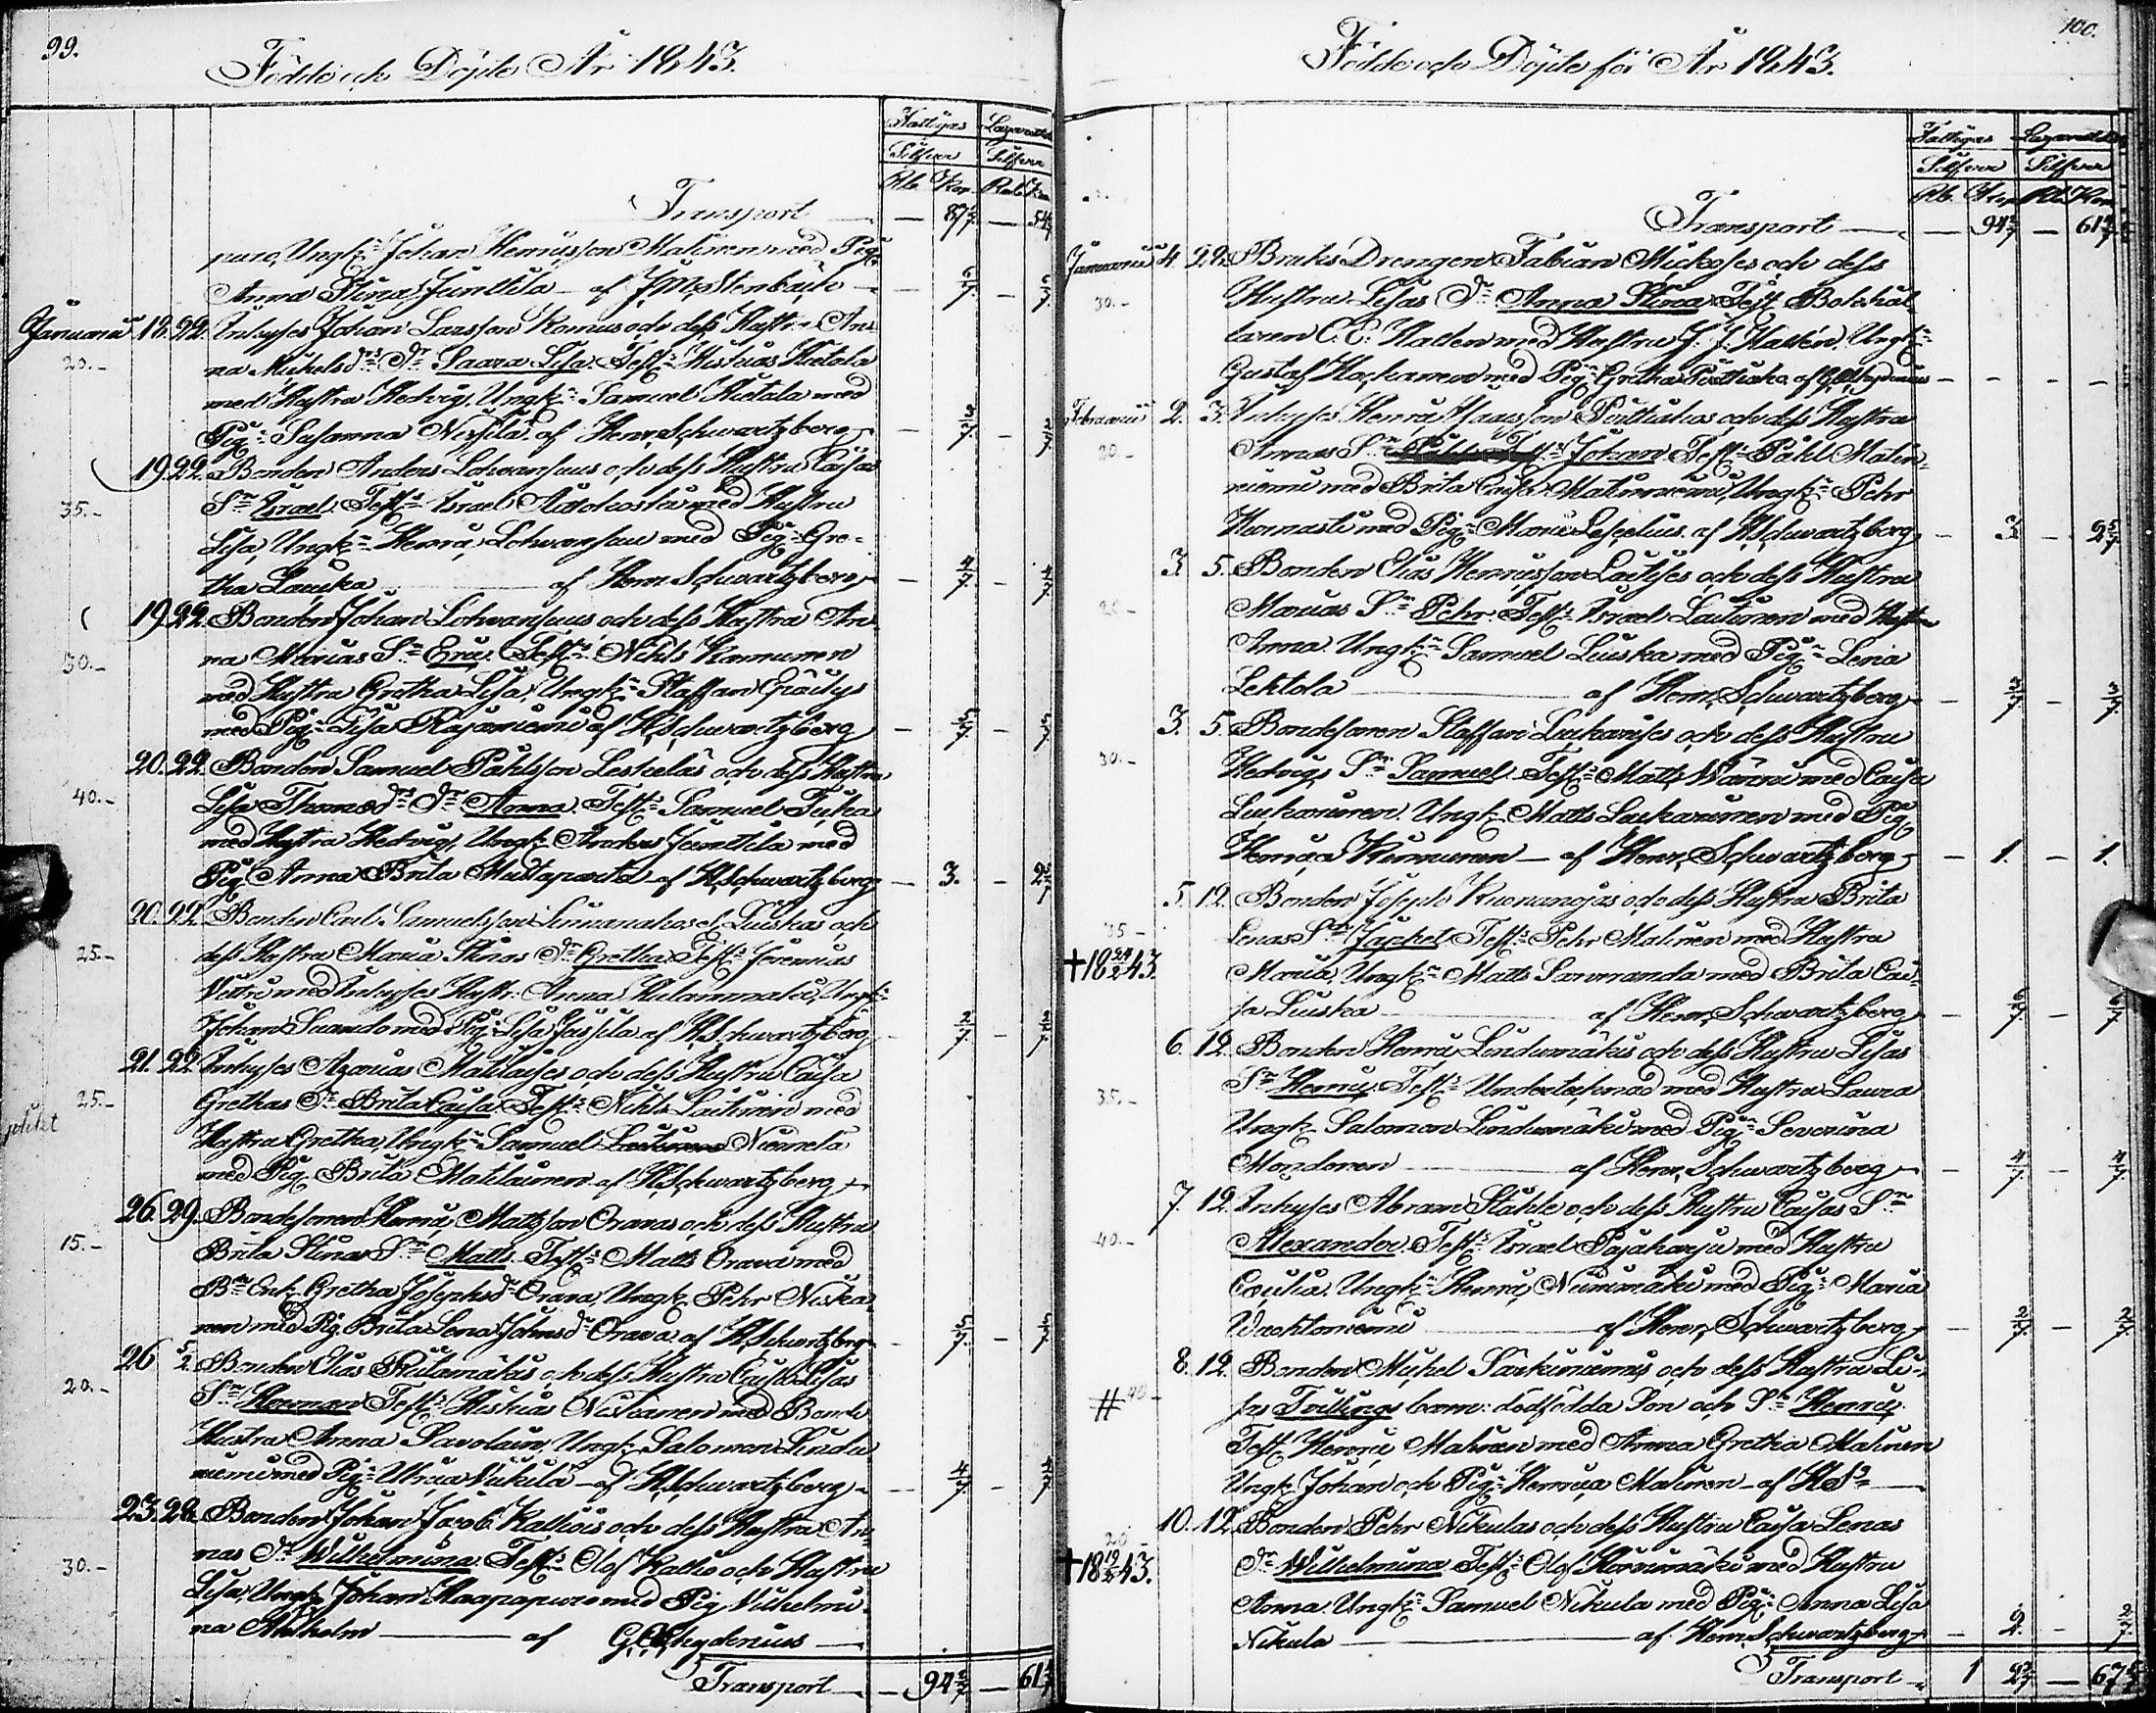 99.
Födde och Döpte År 1843.
Fattigas Lazarettets
Silfver Silfver
Rb. Kop. Rub. Kop.
Transport — 87 4/7 — 54
puro, Ungk: Johan Henricsson Malinen med Pig:
Anna Stina Junttila — af J. M. Stenbäck
Januarii 18. 22. Inhyses Johan Larsson Komus och dess Hustru An-
20.- na Michelsdrs Dr Saara Lisa. Test: Hiskias Kietola
med Hustru Hedvig, Ungk: Samuel Kietala med
Pig: Susanna Nissilä af Henr. Schwartzberg
19. 22. Bonden Anders Lohvansuus och dess Hustru Caisas
35.- Sn Israel. Test: Israel med Hustru
Lisa, Ungk: Henric Lohvansuu med Pig: Gre-
tha Louska — af Henr. Schwartzberg — 4/7
19. 22. Bonden Johan Lohvansuus och dess Hustru An-
30.- na Marias Sn Eric. Test: Nihls Komuinen
med Hustru Gretha Lisa, Ungk: Staffan
med Pig: Lisa Rajaniemi af H. Schwartzberg
20. 22. Bonden Samuel Påhlsson Leskeläs och dess Hustru
40.- Lisa Thomasdrs Dr Anna. Test: Samuel
med Hustru Hedvig, Ungk: Anders Junttila med
Pig: Anna Brita Mustaparta af H. Schwartzberg — 3. — 2
20. 22. Bonden Carl Samuelsson Luiskas och
25.- dess Hustru Maria Stinas Dr Gretha. Test: Jeremias
med Inhyses Hustr: Anna Ungk:
Johan Suando med Pig: Lisa Jussila af H. Schwartzberg — 2/7
21. 22. Inhyses Azarias Matilaises och dess Hustru Caisa
25.- Grethas Dr Brita Caisa. Test: Nihls Laitinen med
Hustru Gretha, Ungk: Samuel Niemelä
med Pig: Brita Matilainen af H. Schwartzberg
26. 29. Bondesonen Henric Mattsson Oravas och dess Hustru
15.- Brita Stinas Sn Matts. Test: Matts Orava med
Bde Enk: Gretha Josephsdr Orava, Ungk: Pehr Niska-
nen med Pig: Brita Lena Johnsdr Orava af H. Schwartzberg — 5/7
26 5/2. Bonden Elias Riilamäkis och dess Hustru Caisa Lisas
20.- Sn Herman. Test: Hiskias Niskanen med Bonde
Hustru Anna Savolain, Ungk: Salomon Lindu-
niemi med Pig: Ulrica Nikula af H. Schwartzberg — 4/7
23. 28. Bonden Johan Jacob Kallios och dess Hustru An-
30.- nas Dr Wilhelmina. Test: Olof Kallio och Hustru
Lisa, Ungk: Johan Haapapuro med Pig: Vilhelmi-
na Ahlholm — af G. Heydenius
Transport — 94 2/7 — 61

100.
Födde och Döpte för År 1843.
Fattigas Lazarettets
Silfver Silfver
Rb. Kop. Rb. Kop.
Transport — 94 2/7 — 61 4/7
Januarii 4. 22. Bruks Drengen Fabian Mickoses och dess
30.- Hustru Lisas Dr Anna Stina. Test: Bokhål-
laren C. E. Hallén med Hustru J. J. Hallén, Ungk:
Gustaf Hockanen med Pig: Gretha af G. Heydenius
Februarii 2. 3. Inhyses Henric och dess Hustru
20.- Annas Sn Johan. Test: Påhl Matin-
niemi med Brita Caisa Matinniemi, Ungk: Pehr
med Pig: Maria af H. Schwartzberg — 3 — 2 5/7
3. 5. Bonden Elias Henricsson Laitises och dess Hustru
20.- Marias Sn Pehr. Test: Israel Laitinen med Hustru
Anna. Ungk: Samuel Luiska med Pig: Lena
Lehtola — af Henr. Schwartzberg
3. 5. Bondesonen Staffan Luukanises och dess Hustru
30.- Hedvigs Sn Samuel. Test: Matts med Caisa
Lukainen. Ungk: Matts Luukainen med Pig:
Henrica Kinnunen — af Henr. Schwartzberg — 1. — 1.
5. 12. Bonden Joseph Kuonanojas och dess Hustru Brita
35- Lenas Sn Japhet. Test: Pehr Malinen med Hustru
†18 24/2 43. Maria, Ungk: Matts Sarvranda med Brita Cai-
sa Luiska — af Henr. Schwartzberg
6. 12. Bonden Henric Lindumäkis och dess Hustru Lisas
35.- Sn Henric. Test: Undertecknad med Hustru Laura
Ungk: Salomon Lindumäki med Pig: Severina
Mondonen — af Henr. Schwartzberg — 4/7 — 4/7
7. 12. Inhyses Abram Ståhle och dess Hustru Caisas Sn
40.- Alexander. Test: Israel Pajaharju med Hustru
Cecilia. Ungk: Henric Niinimäki med Pig: Maria
Wachtoniemi — af Henr. Schwartzberg — 2/7 — 2/7
8. 12. Bonden Michel Särkiniemis och dess Hustru Li-
# 40- sas Tvillings barn: dödfödda Son och Sn Henric.
Test: Henric Malinen med Anna Gretha Malinen
Ungk: Johan och Pig: Henrica Malinen af H. S:
10. 12. Bonden Pehr Nikulas och dess Hustru Caisa Lenas
20-
†18 19/2 43. Dr Wilhelmina. Test: Olof med Hustru
Anna. Ungk: Samuel Nikula med Pig: Anna Lisa
Nikula — af Henr. Schwartzberg — 2. — 2/7
Transport — 1 2 2/7 — 67